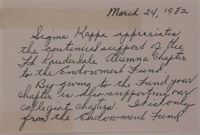 March 24, 1982
Sigma Kappa appreciates
the continued support of the
Ft. Lauderdale Alumnae Chapter
to the Endowment Fund.
By giving to the Fund, your
chapter is also supporting our
collegiate chapters.
from the Endowment Fund